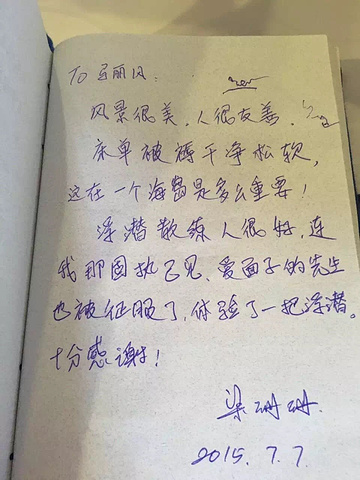 To 马丽风：
风景很美，人很友善，
床单被褥干净松软，
这在一个海岛是多么重要！
浮潜教练人很好，连
我那固执己见、爱面子的先生
也被征服了，体验了一把浮潜。
十分感谢！
梁珊珊
2015.7.7.